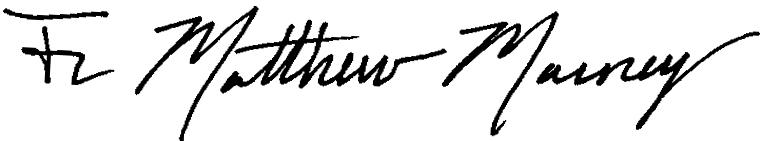 Fr Matthew Marney